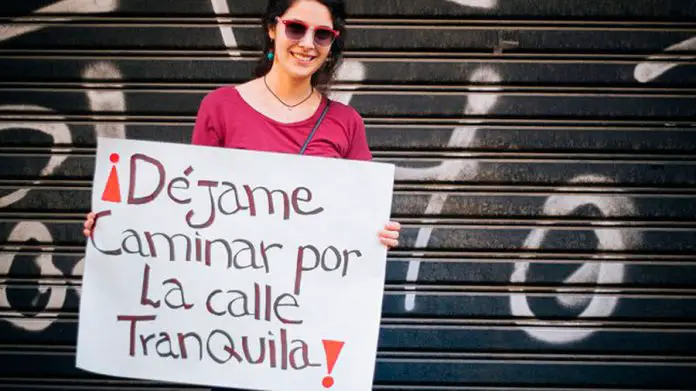 ¡Déjame
Caminar por
La calle
TranQuila!